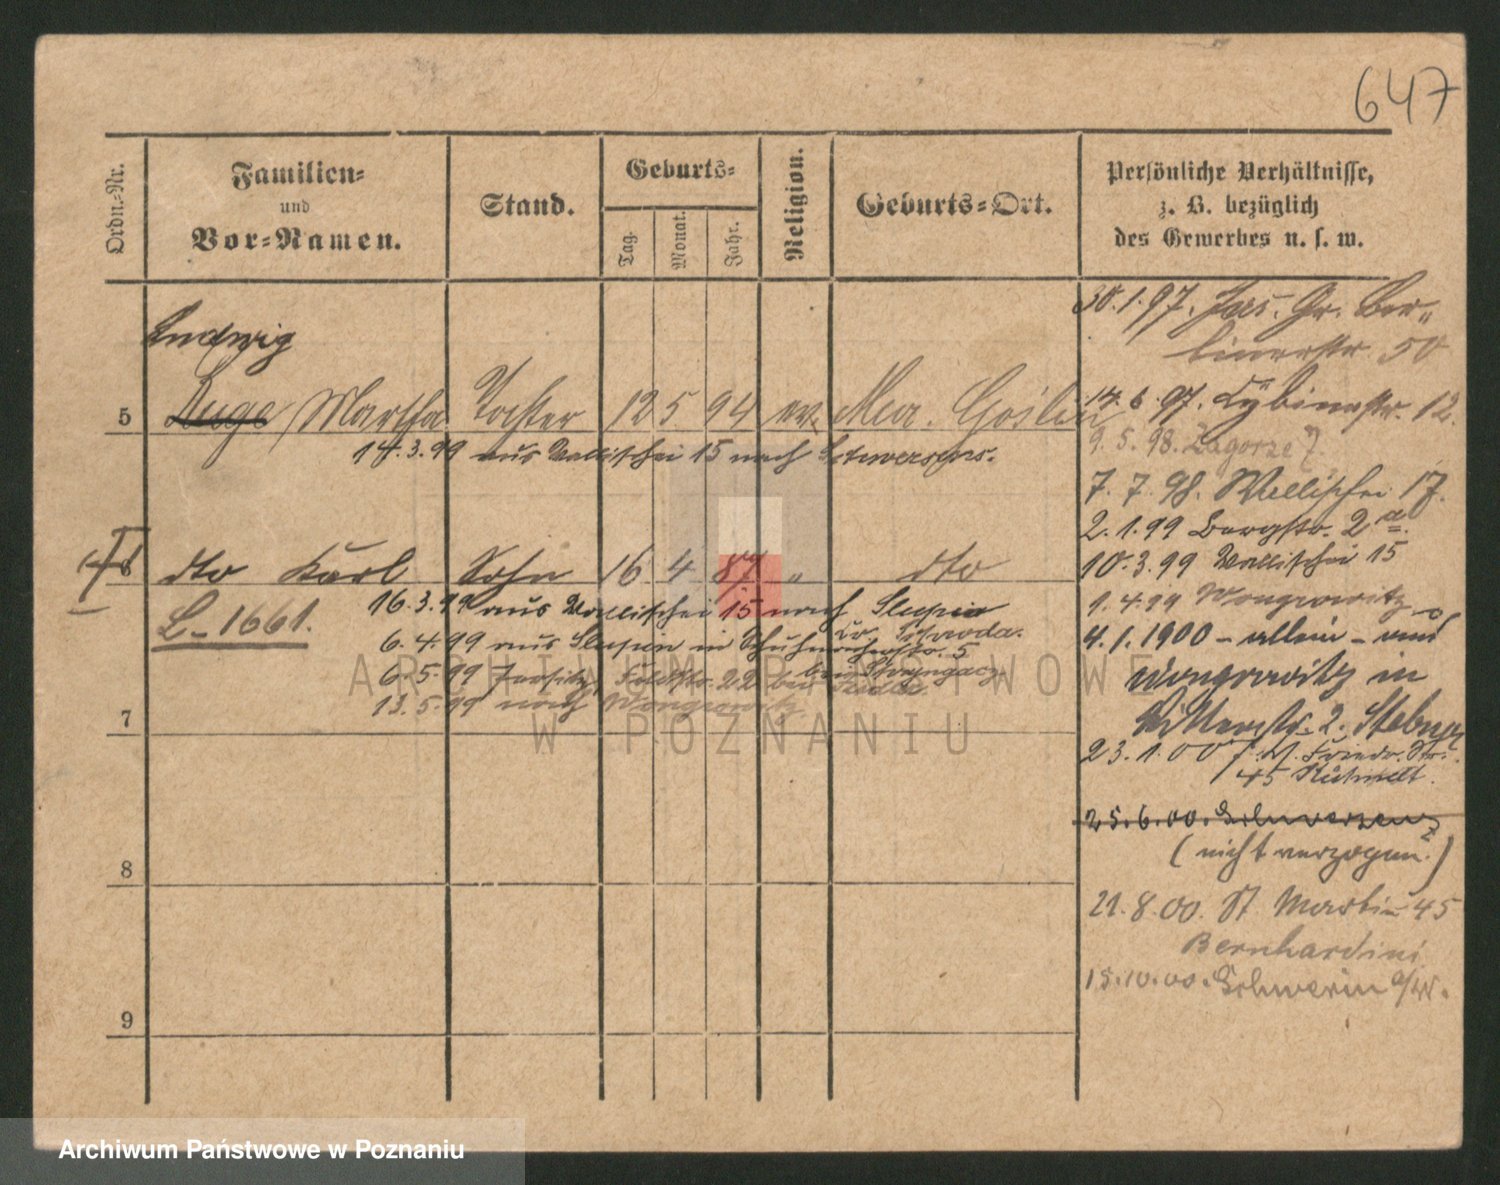 647
Ordn.-Nr.
Familien-
und
Vor-Namen.
Stand.
Geburts-
Tag.
Monat.
Jahr.
Religion.
Geburts-Ort.
Persönliche Verhältnisse,
z. B. bezüglich
des Gewerbes u. s. w.
30.1.97. Gr. Ber-
linerstr 50
Ludwig
5 Martha Tochter 12 5 94 ev. Gośl
14.6.97. Lybinastr. 12.
14.3.99 aus Wallischei 15 nach Schwersenz.
9.5.98. Zagorze 7.
7.7.98. Wallischei 17.
2.1.99 Bergstr. 2 a
6 dto Karl Sohn 16 4 87 " dto
10.3.99 Wallischei 15
L-1661.
16.3.99 aus Wallischei 15 nach Slupia
Kr. Schroda.
1.4.99 Wongrowitz
6.4.99 aus Slupia in Schuhmacherstr. 5
4.1.1900 - allein - aus
6.5.99 Jersitz, Feldstr. 22 bei
13.5.99 nach Wongrowitz
Wongrowitz in
7
Ritterstr. 2.
23.1.00 Friedr. Str.
45
25.6.00. Schwersenz
(nicht verzogen.)
8
21.8.00. St Martin 45
Bernhardini
15.10.00. Schwerin a/W.
9
ARCHIWUM PAŃSTWOWE
W POZNANIU
Archiwum Państwowe w Poznaniu